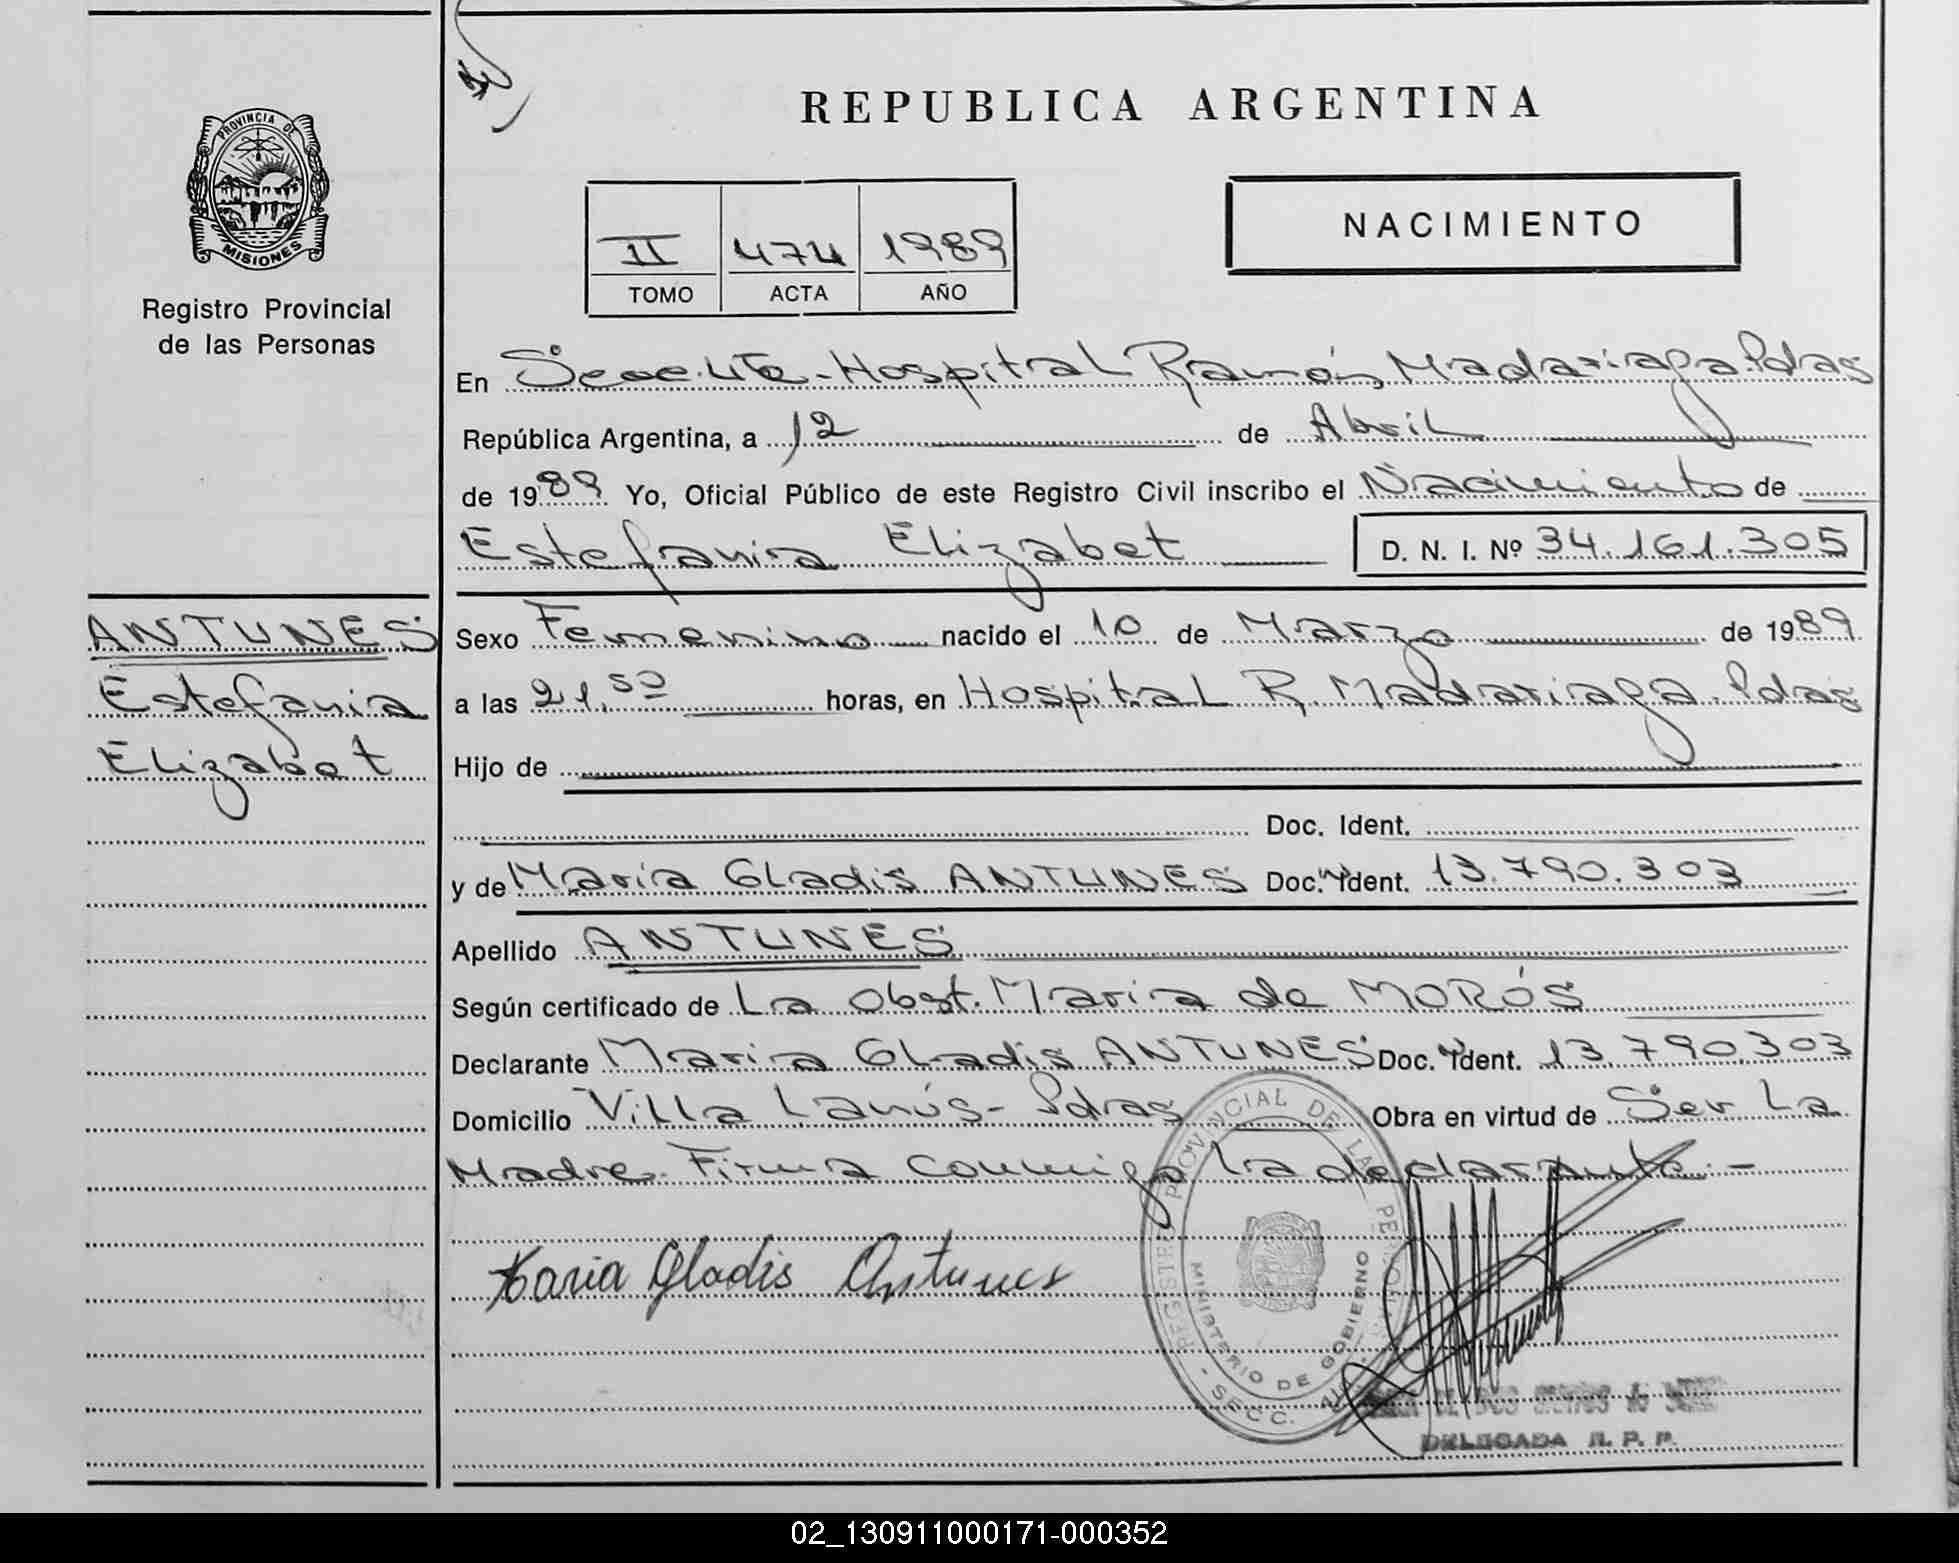 REPUBLICA ARGENTINA
PROVINCIA DE
MISIONES
Registro Provincial
de las Personas
NACIMIENTO
II 474 1989
TOMO ACTA AÑO
En Secc. 4ta - Hospital Ramón Madariaga. Pdas
República Argentina, a 12 de Abril
de 1989 Yo, Oficial Público de este Registro Civil inscribo el Nacimiento de
Estefania Elizabet D. N. I. Nº 34.161.305
ANTUNES
Estefania
Elizabet
Sexo Femenino nacido el 10 de Marzo de 1989
a las 21,50 horas, en Hospital R. Madariaga. Pdas
Hijo de
Doc. Ident.
y de Maria Gladis ANTUNES Doc. Ident. 13.790.303
Apellido ANTUNES
Según certificado de La Obst. Maria de MORÓS
Declarante Maria Gladis ANTUNES Doc. Ident. 13.790.303
Domicilio Villa Lanús - Pdas Obra en virtud de Ser La
Madre. Firma conmigo La declarante. -
Maria Gladis Antunes
REGISTRO PROVINCIAL DE LAS PERSONAS
MINISTERIO DE GOBIERNO
- SECC.
DELEGADA R. P. P.
02_130911000171-000352